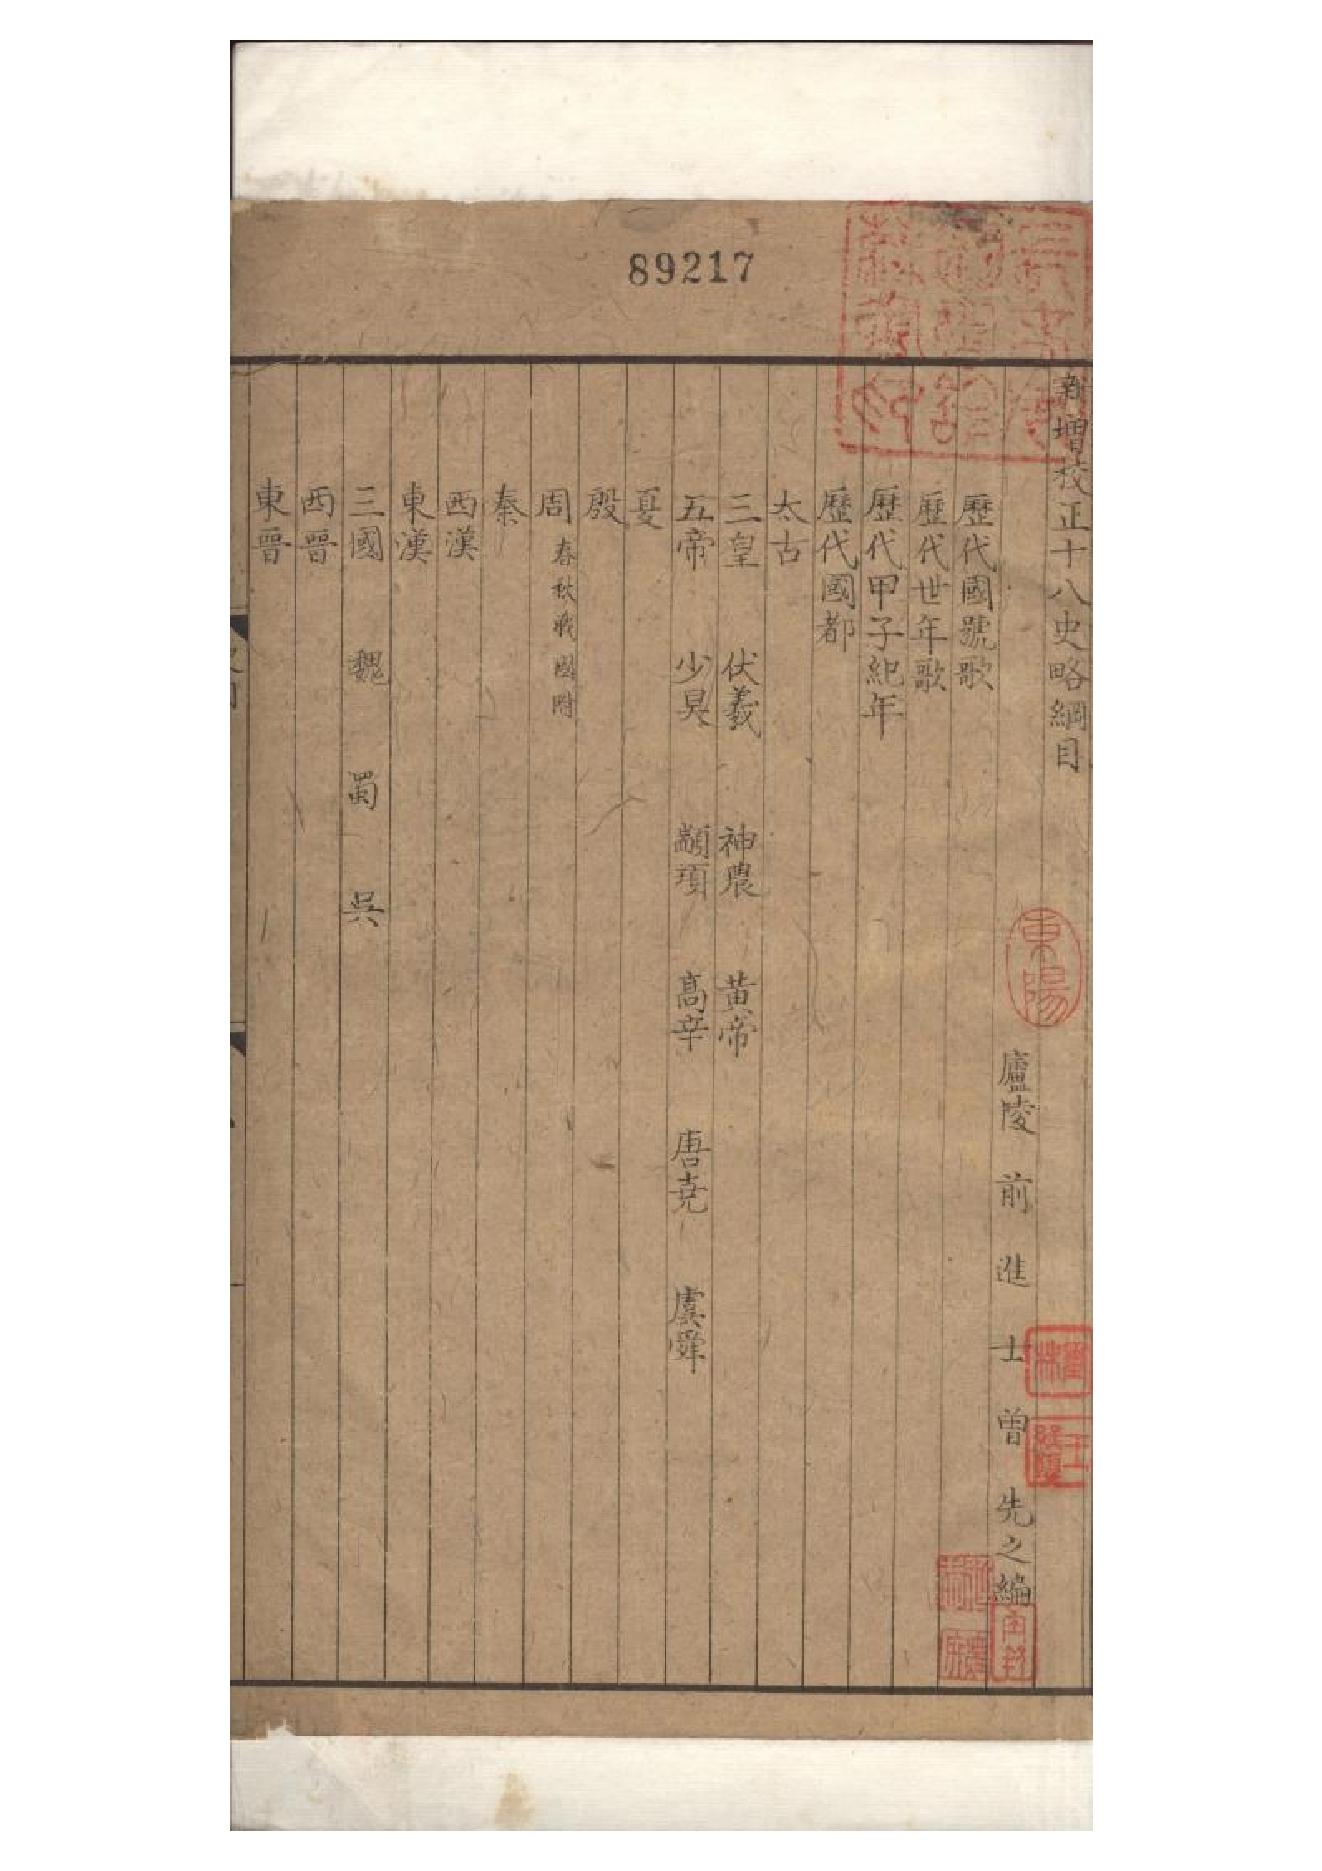 89217
新增校正十八史略綱目
廬陵前進士曾先之編
歷代國號歌
歷代世年歌
歷代甲子紀年
歷代國都
太古
三皇 伏羲 神農 黃帝
五帝 少昊 顓頊 高辛 唐堯 虞舜
夏
殷
周 春秋戰國附
秦
西漢
東漢
三國 魏 蜀 吳
西晉
東晉
東陽